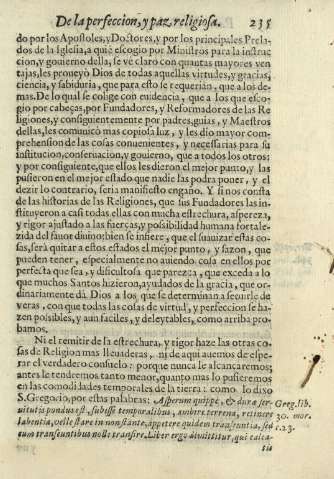 De la perfeccion, y paz religiosa. 235
do por los Apostoles, y Doctores, y por los principales Prela-
dos de la Iglesia, a quie escogio por Ministros para la instruc
cion, y gouierno della, se vé claro con quantas mayores ven
tajas, les proueyò Dios de todas aquellas virtudes, y gracias,
ciencia, y sabiduria, que para esto se requerian, que a los de-
mas. De lo qual se colige con euidencia, que a los que esco-
gio por cabeças, por Fundadores, y Reformadores de las Re
ligiones, y consiguientemente por padres, guias, y Maestros
dellas, les comunicò mas copiosa luz, y les dio mayor com-
prehension de las cosas conuenientes, y necessarias para su
institucion, conseruacion, y gouierno, que a todos los otros:
y por consiguiente, que ellos les dieron el mejor punto, y las
pusieron en el mejor estado que nadie las podra poner, y el
dezir lo contrario, seria manifiesto engaño. Y si nos consta
de las historias de las Religiones, que sus Fundadores las ins-
tituyeron a casi todas ellas con mucha estrechura, aspereza,
y rigor ajustado a las fuerças, y possibilidad humana fortale-
zida del fauor diuino; bien se infiere, que el suauizar estas co-
sas, serà quitar a estos estados el mejor punto, y sazon, que
pueden tener, especialmente no auiendo cosa en ellos por
perfecta que sea, y dificultosa que parezca, que exceda a lo
que muchos Santos hizieron, ayudados de la gracia, que or-
dinariamente dà Dios a los que se determinan a seruirle de
veras, con que todas las cosas de virtud, y perfeccion se ha-
zen possibles, y aun faciles, y deleytables, como arriba pro-
bamos.
Ni el remitir de la estrechura, y rigor haze las otras co-
sas de Religion mas lleuaderas, ni de aqui auemos de espe-
rar el verdadero consuelo: porque nunca le alcançaremos;
antes le tendremos tanto menor, quanto mas lo pusieremos
en las comodidades temporales de la tierra: como lo dixo
S. Gregorio, por estas palabras: Asperum quippè, & dura ser-
uitutis pondus est, subesse temporalibus, ambire terrena, retinere
labentia, velle stare in non stante, appetere quidem transeuntia, sed
cum transeuntibus nolle transire. Liber ergo dimittitur, qui calca-
tis
Greg. lib.
30. mor.
c. 23.